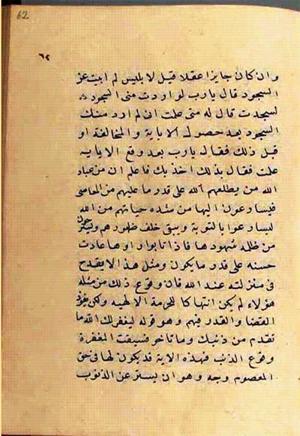 62
٦٢
وان كان جايزا عقلا قيل لابليس لم ابيت عن
السجود قال يارب لو اردت منى السجود
لسجدت قال له متى علمت انى لم ارد منك
السجود بعد حصول الاباية والمخالفة او
قبل ذلك فقال يارب بعد وقع الاباية
علمت فقال بذلك اخذتك فاعلم ان من عباد
الله من يطلعهم الله على قدر ما عليهم من المعاصى
فيسارعون اليها من شده حيايهم من الله
ليسارعوا بالتوبة ويبقى خلف ظهورهم ويستريحون
من ظلمة شهودها فاذا تابوا راوها عادت
حسنه على قدر ما يكون ومثل هذا لا يقدح
فى منزلته عند الله فان وقوع ذلك من مثله
هؤلاء لم يكن انتهاكا للحرمة الالهية ولكن بنفوذ
القضا والقدر فيهم وهو قوله ليغفر لك الله ما
تقدم من ذنبك وما تاخر فسبقت المغفرة
وقوع الذنب فهذه الاية قد يكون لها فى حق
المعصوم وجه وهو ان يستر عن الذنوب